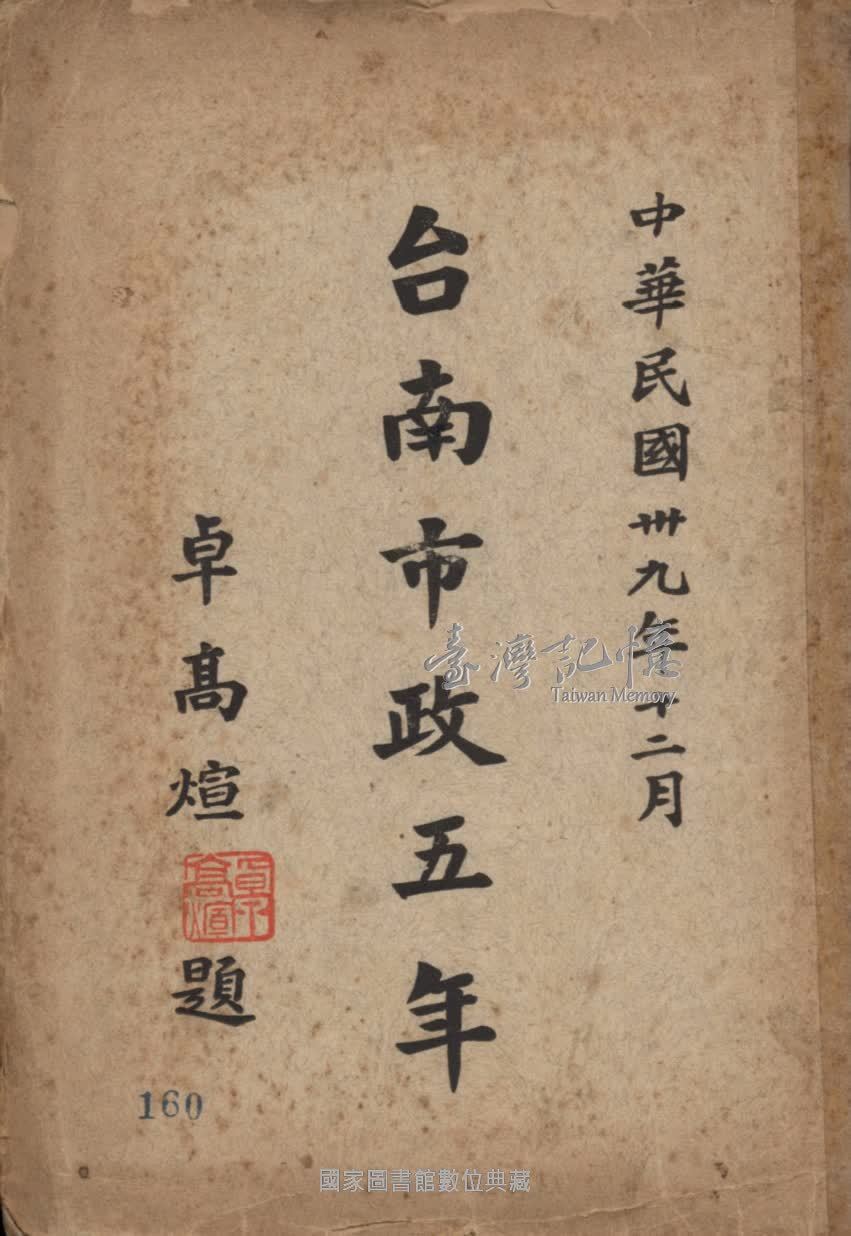 中華民國卅九年十二月
台南市政五年
卓高煊題
160
臺灣記憶
Taiwan Memory
國家圖書館數位典藏